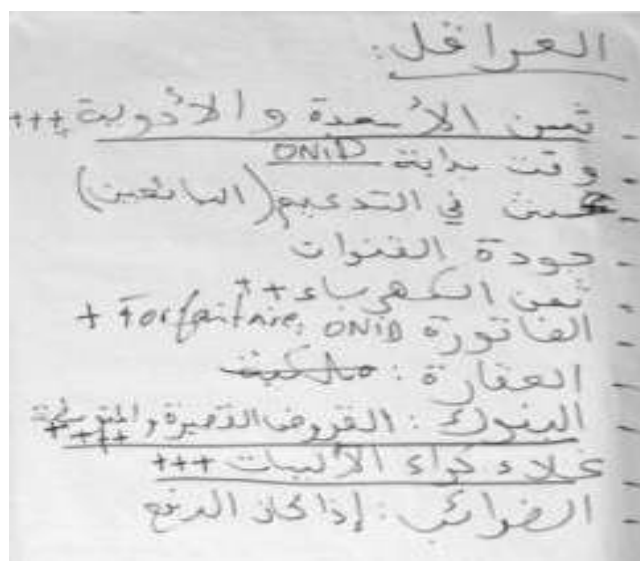 العراقل:
- ثمن الأسمدة والأدوية +++
- وقت بداية ONID
- غش في التدعيم (البائعين)
- جودة القنوات
- ثمن الكهرباء ++
- الفاتورة ONID, Forfaitaire +
- العقارة :
- البنوك : القروض القصيرة والمتوسطة ++++
- غلاء كراء الأليات +++
- الضرائب : إذا كان الدفع